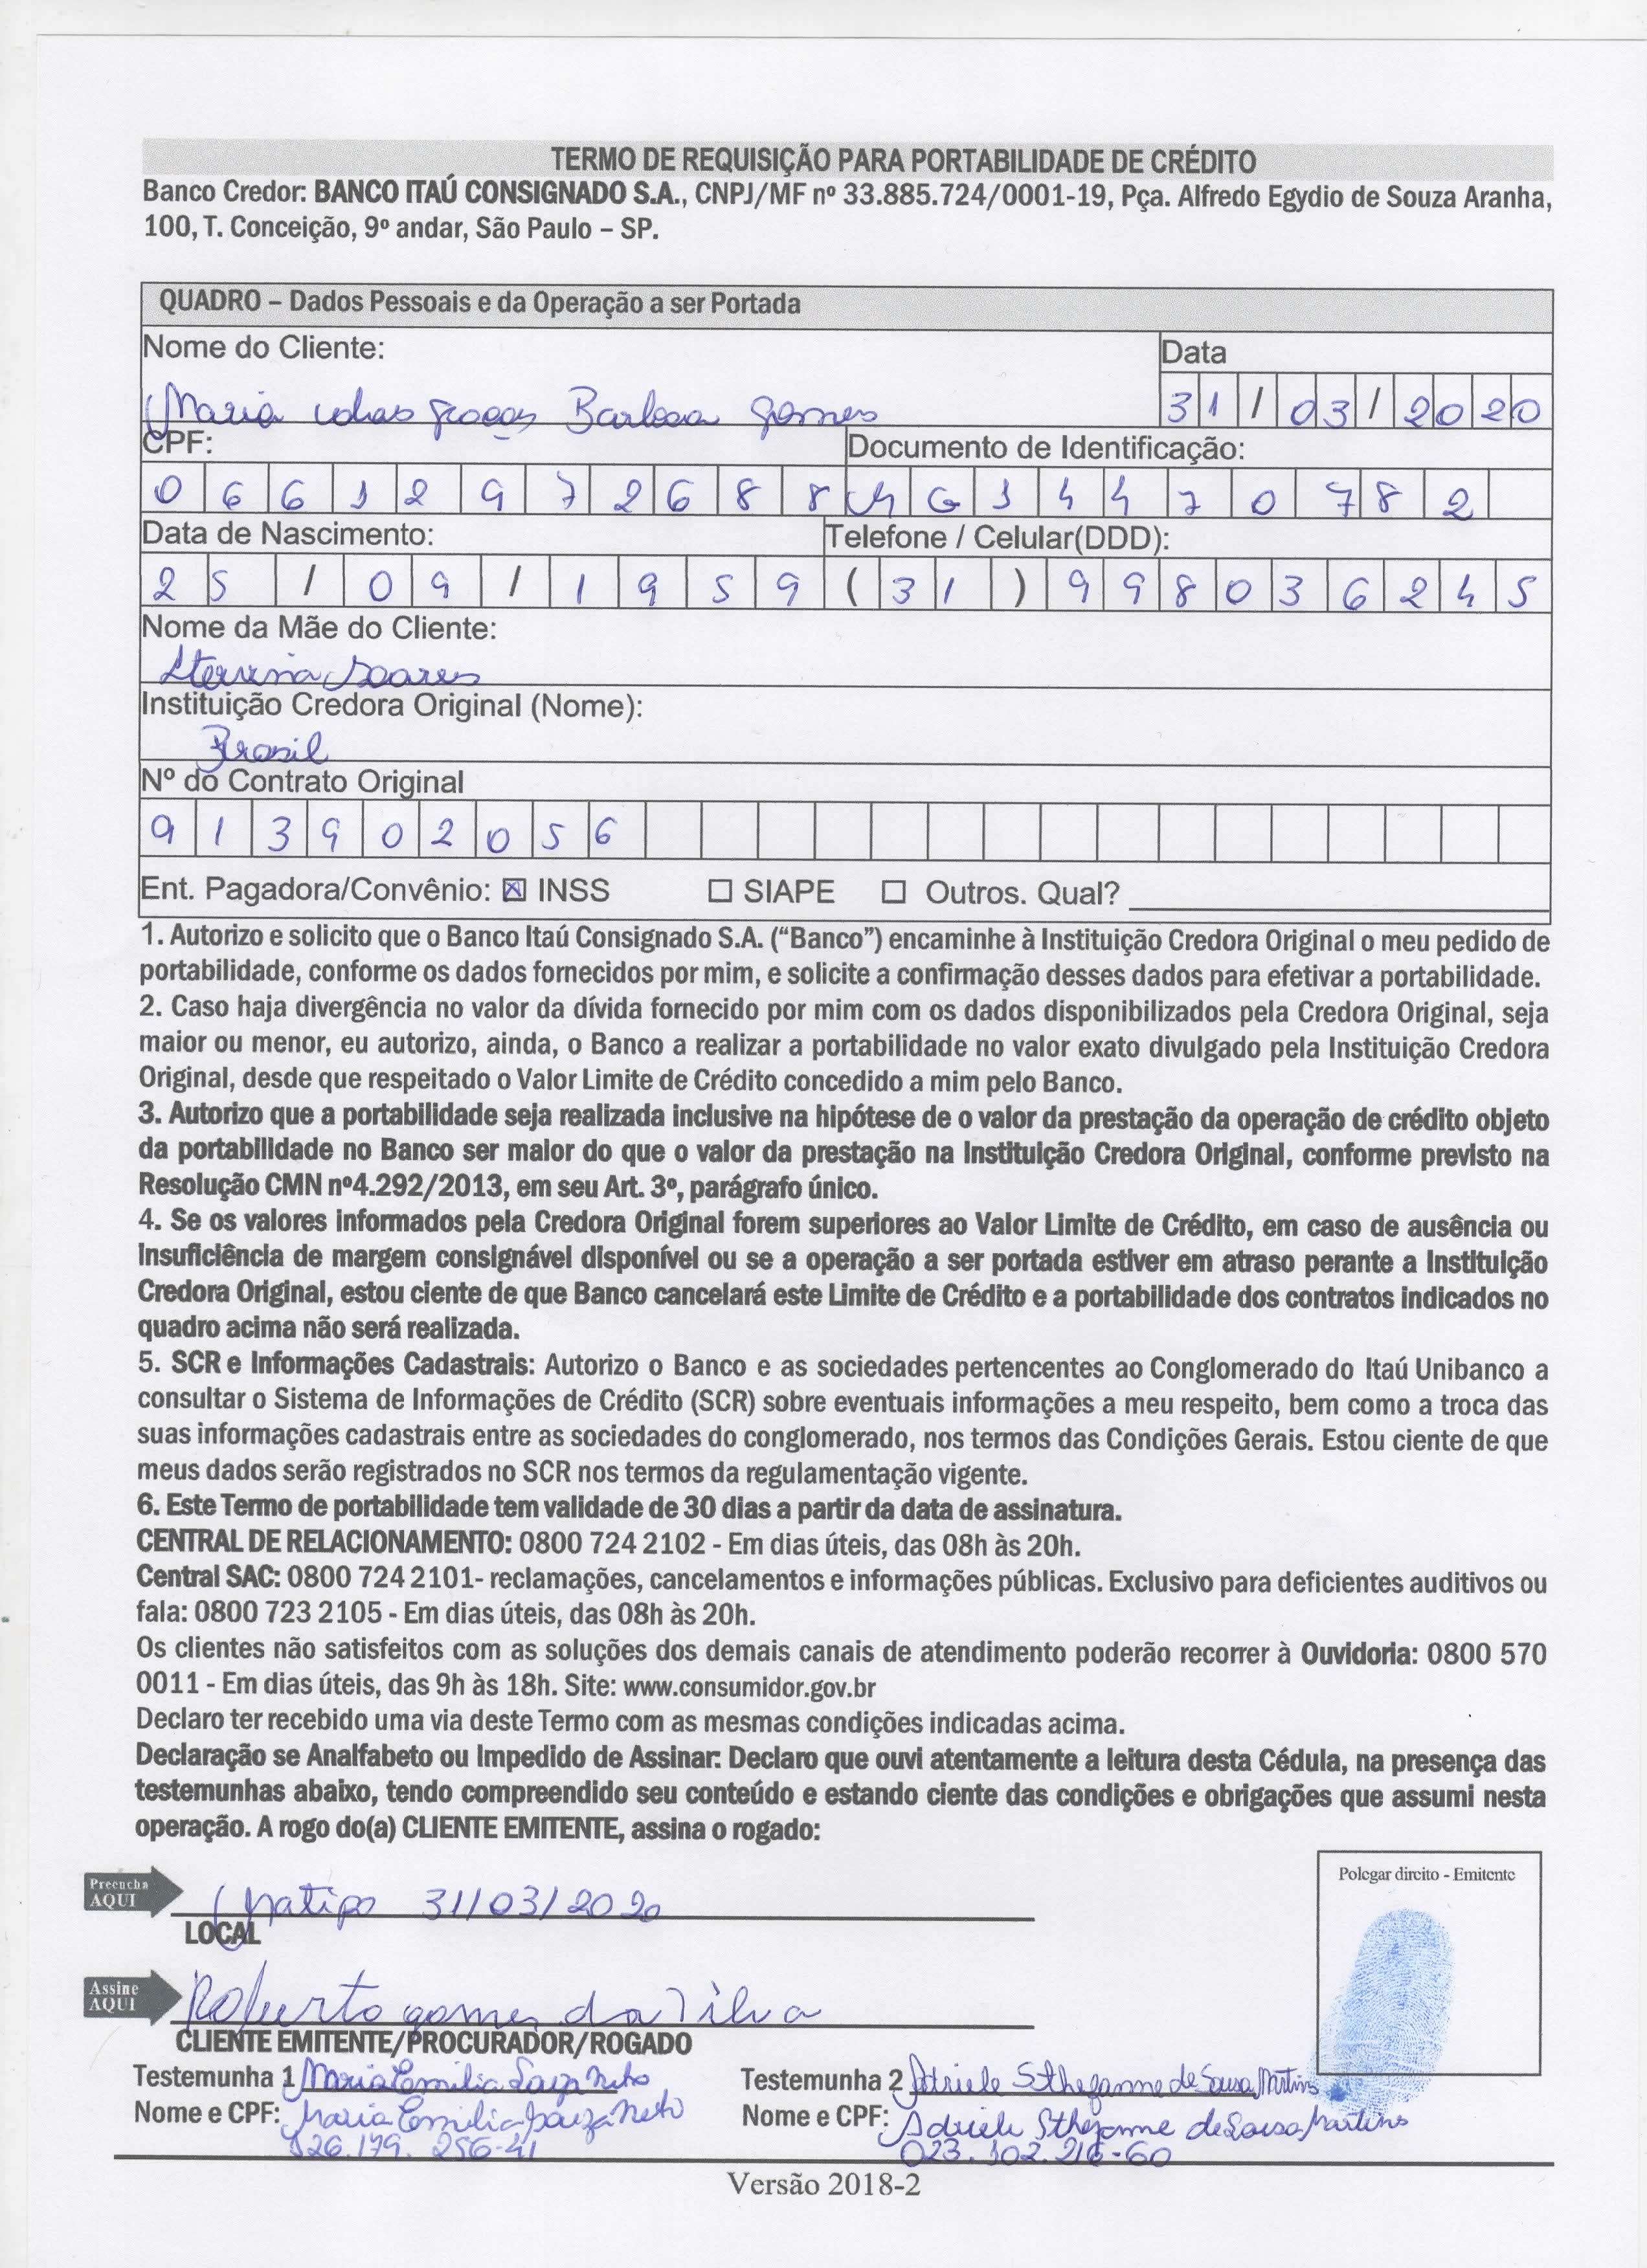 TERMO DE REQUISIÇÃO PARA PORTABILIDADE DE CRÉDITO
Banco Credor: BANCO ITAÚ CONSIGNADO S.A., CNPJ/MF nº 33.885.724/0001-19, Pça. Alfredo Egydio de Souza Aranha,
100, T. Conceição, 9º andar, São Paulo – SP.
QUADRO – Dados Pessoais e da Operação a ser Portada
Nome do Cliente: Data
Maria das graças Barbosa gomes 31/03/2020
CPF: Documento de Identificação:
06612972688 MG14470782
Data de Nascimento: Telefone / Celular(DDD):
25/09/1959 (31) 998036245
Nome da Mãe do Cliente:
Soares
Instituição Credora Original (Nome):
Brasil
Nº do Contrato Original
913902056
Ent. Pagadora/Convênio: ☒ INSS ☐ SIAPE ☐ Outros. Qual?
1. Autorizo e solicito que o Banco Itaú Consignado S.A. (“Banco”) encaminhe à Instituição Credora Original o meu pedido de
portabilidade, conforme os dados fornecidos por mim, e solicite a confirmação desses dados para efetivar a portabilidade.
2. Caso haja divergência no valor da dívida fornecido por mim com os dados disponibilizados pela Credora Original, seja
maior ou menor, eu autorizo, ainda, o Banco a realizar a portabilidade no valor exato divulgado pela Instituição Credora
Original, desde que respeitado o Valor Limite de Crédito concedido a mim pelo Banco.
3. Autorizo que a portabilidade seja realizada inclusive na hipótese de o valor da prestação da operação de crédito objeto
da portabilidade no Banco ser maior do que o valor da prestação na Instituição Credora Original, conforme previsto na
Resolução CMN nº4.292/2013, em seu Art. 3º, parágrafo único.
4. Se os valores informados pela Credora Original forem superiores ao Valor Limite de Crédito, em caso de ausência ou
insuficiência de margem consignável disponível ou se a operação a ser portada estiver em atraso perante a Instituição
Credora Original, estou ciente de que Banco cancelará este Limite de Crédito e a portabilidade dos contratos indicados no
quadro acima não será realizada.
5. SCR e Informações Cadastrais: Autorizo o Banco e as sociedades pertencentes ao Conglomerado do Itaú Unibanco a
consultar o Sistema de Informações de Crédito (SCR) sobre eventuais informações a meu respeito, bem como a troca das
suas informações cadastrais entre as sociedades do conglomerado, nos termos das Condições Gerais. Estou ciente de que
meus dados serão registrados no SCR nos termos da regulamentação vigente.
6. Este Termo de portabilidade tem validade de 30 dias a partir da data de assinatura.
CENTRAL DE RELACIONAMENTO: 0800 724 2102 - Em dias úteis, das 08h às 20h.
Central SAC: 0800 724 2101- reclamações, cancelamentos e informações públicas. Exclusivo para deficientes auditivos ou
fala: 0800 723 2105 - Em dias úteis, das 08h às 20h.
Os clientes não satisfeitos com as soluções dos demais canais de atendimento poderão recorrer à Ouvidoria: 0800 570
0011 - Em dias úteis, das 9h às 18h. Site: www.consumidor.gov.br
Declaro ter recebido uma via deste Termo com as mesmas condições indicadas acima.
Declaração se Analfabeto ou Impedido de Assinar: Declaro que ouvi atentamente a leitura desta Cédula, na presença das
testemunhas abaixo, tendo compreendido seu conteúdo e estando ciente das condições e obrigações que assumi nesta
operação. A rogo do(a) CLIENTE EMITENTE, assina o rogado:
Polegar direito - Emitente
Preencha
AQUI
Matipo 31/03/2020
LOCAL
Assine
AQUI
Roberto gomes da Silva
CLIENTE EMITENTE/PROCURADOR/ROGADO
Testemunha 1 Maria Emilia Souza Neto Testemunha 2 Adriele Sthefanne de Sousa Martins
Nome e CPF: Maria Emilia Souza Neto Nome e CPF: Adriele Sthefanne de Sousa Martins
126.179.256-41 023.102.216-60
Versão 2018-2